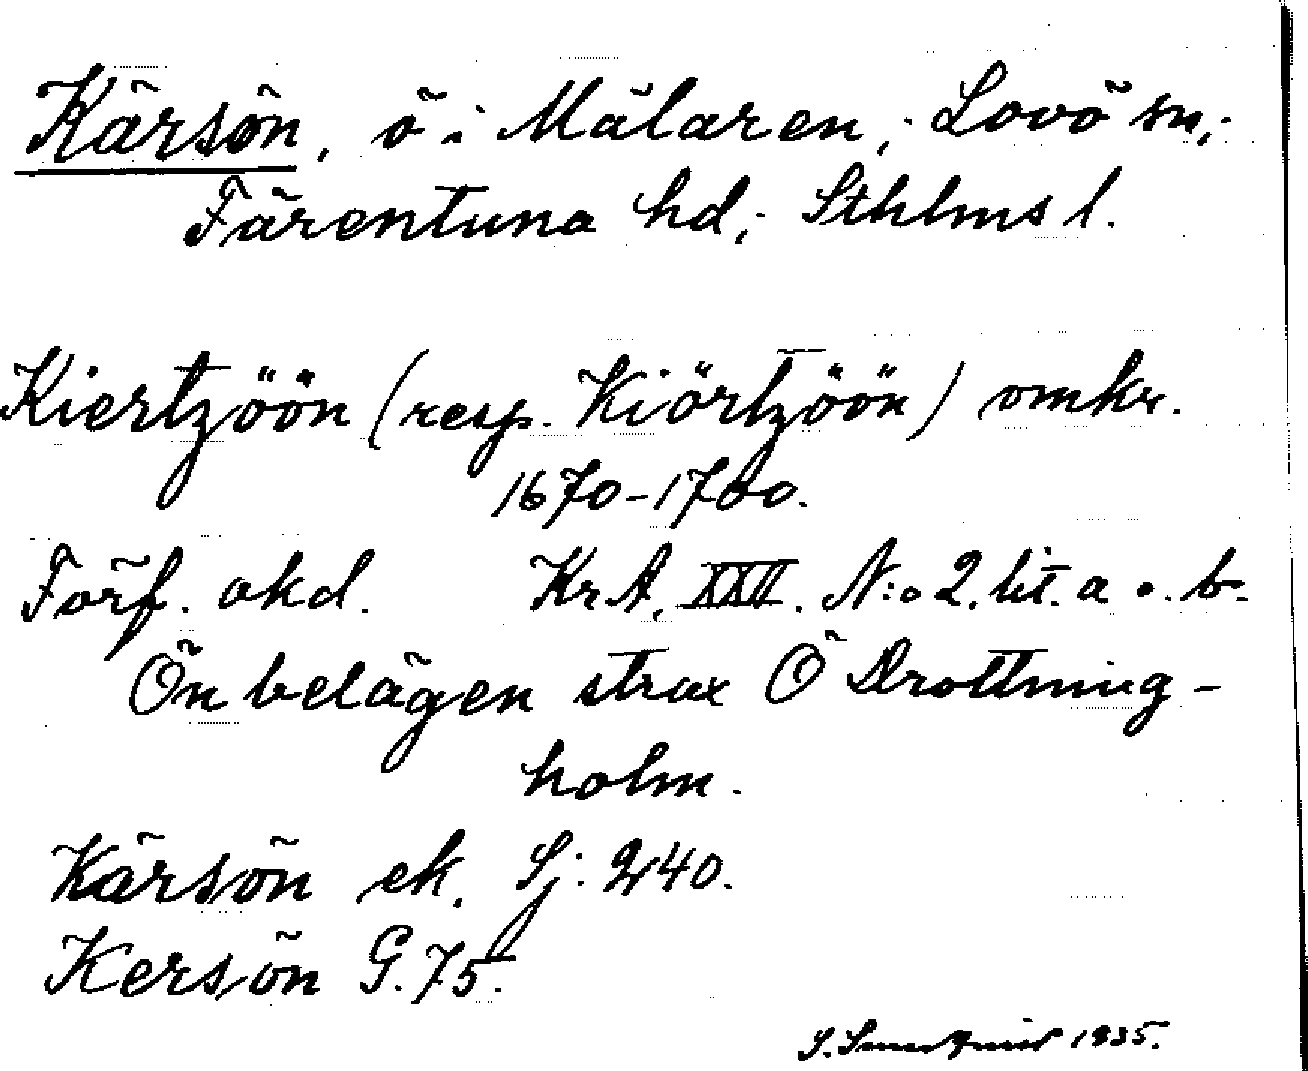 Kärsön, ö i Mälaren, Lovö sn,
Färentuna hd, Sthlms l.
Kiertzöön (resp. Kiörtzöön) omkr.
1670-1700.
Förf. okd. KrA. XXII. N:o 2. lit. a o. b.
Ön belägen strax Ö Drottning-
holm.
Kärsön ek. Sj: 240.
Kersön G. 75.
S. 1935.